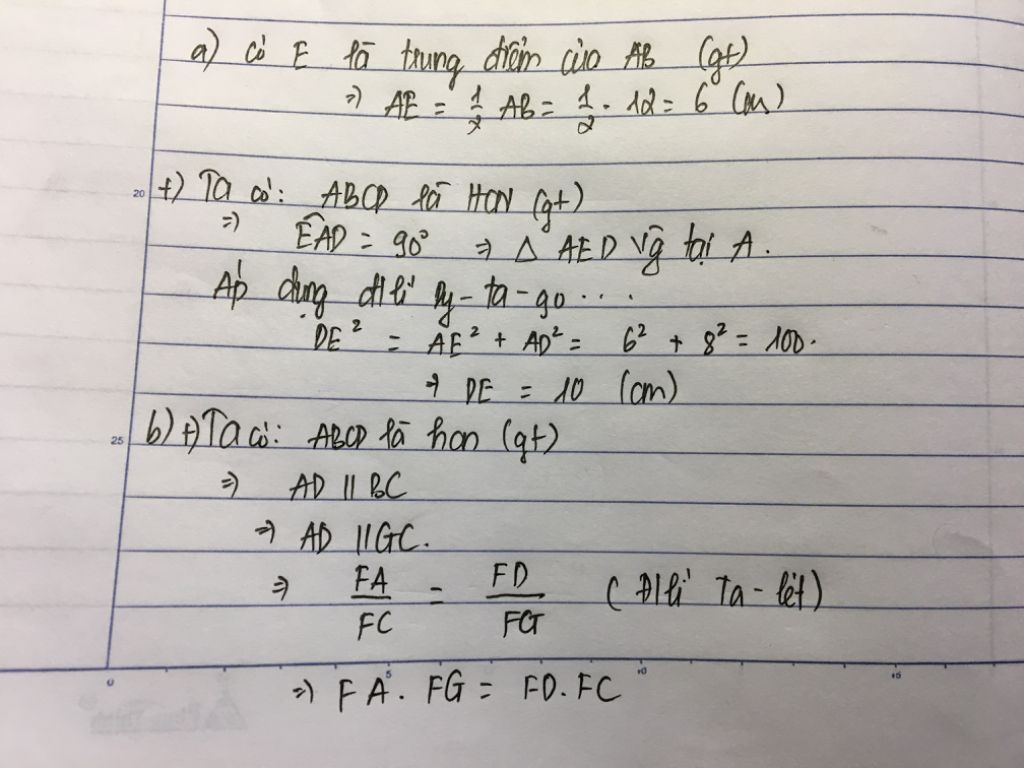 a) có E là trung điểm của AB (gt)
⇒ AE = 1/2 AB = 1/2 · 12 = 6 (cm)
20 +) Ta có: ABCD là HCN (gt)
⇒ EAD = 90° ⇒ △ AED vg tại A.
Áp dụng đ/lí Py-ta-go ...
DE² = AE² + AD² = 6² + 8² = 100.
⇒ DE = 10 (cm)
25 b) +) Ta có: ABCD là hcn (gt)
⇒ AD // BC
⇒ AD // GC.
⇒ FA/FC = FD/FG (Đ/lí Ta-lét)
0 5 10 15
⇒ FA. FG = FD.FC